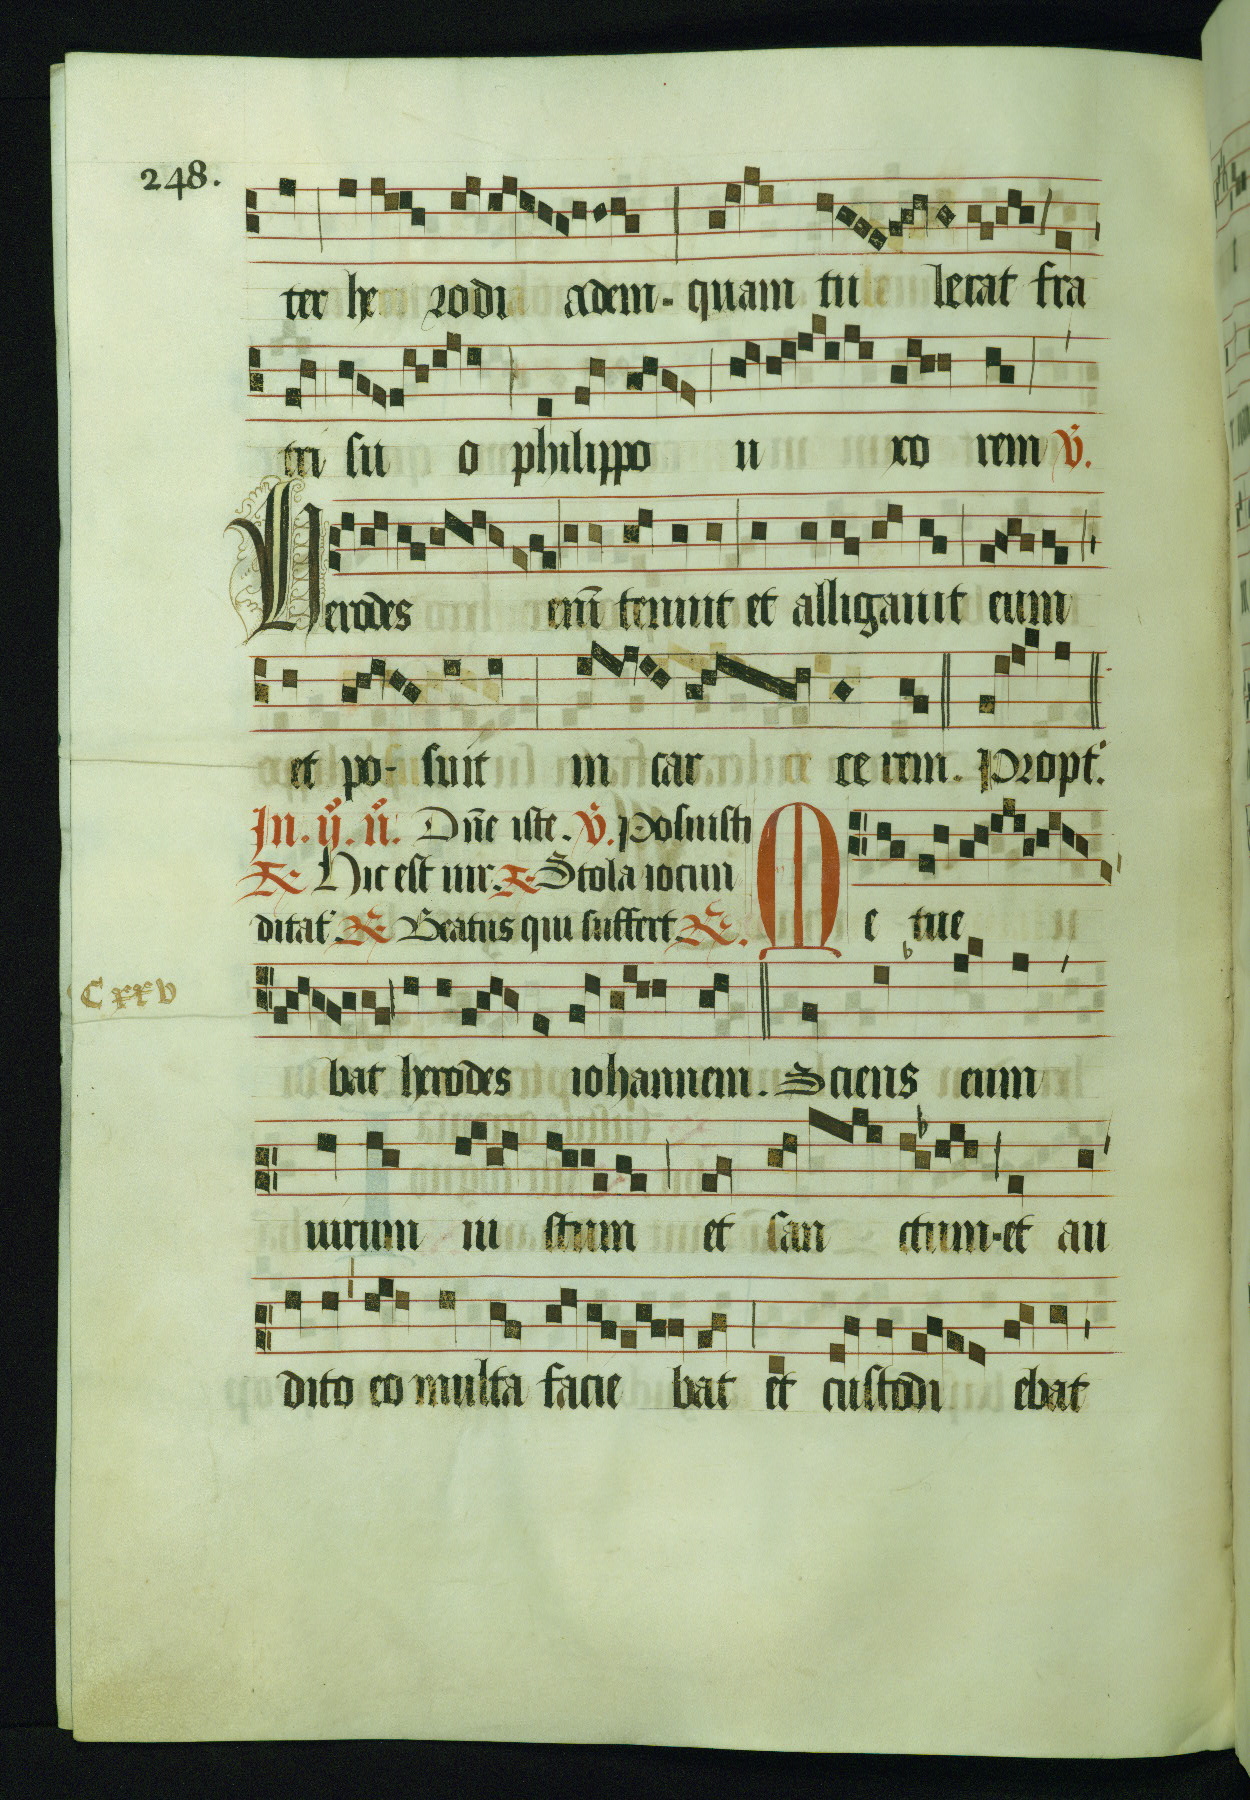 248.
ter he rodi adem - quam tu lerat fra
tri su o philippo u xo rem v̄.
Herodes eni᷒ tenuit et alligauit eum
et po - suit in car ce rem. Propt᷒.
In. ij. n̄. Dn̄e iste. v̄. Posuisti
A. Hic est uir. A. Stola iocun
ditat᷒. R. Beatus qui suffert R.
Me tue
Cxxv
bat herodes iohannem. Sciens eum
uirum iu stum et san ctum - et au
dito eo multa facie bat et custodi ebat